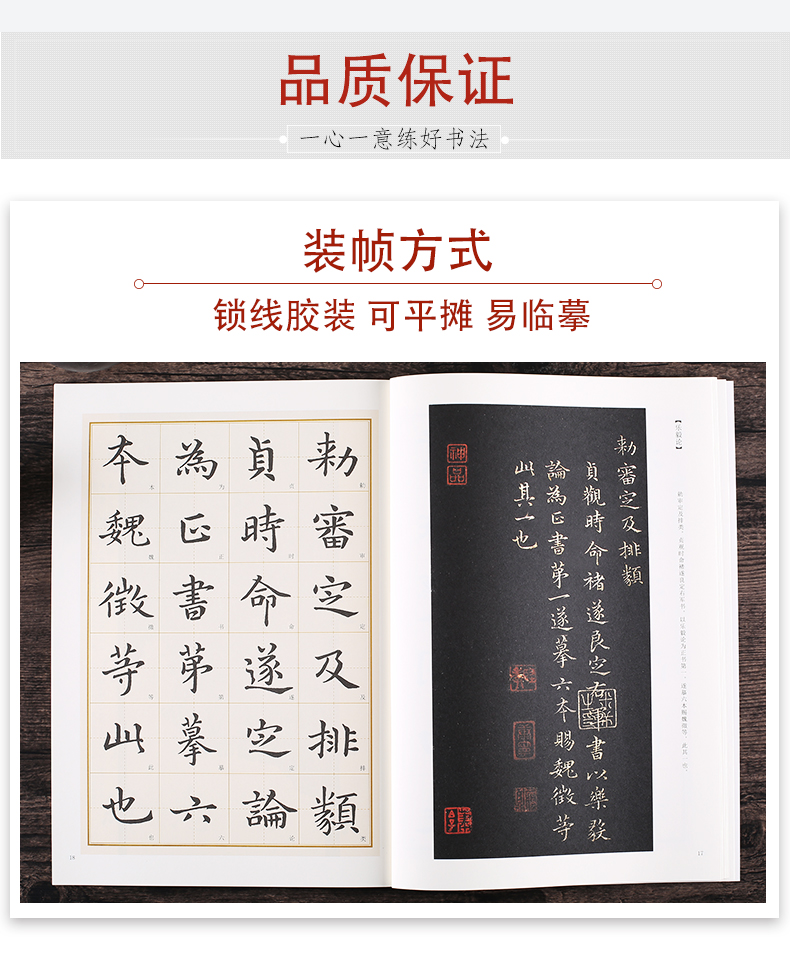 品质保证
一心一意练好书法
装帧方式
锁线胶装 可平摊 易临摹
勑審定及排類
貞時命遂定論
為正書第摹六
本魏徵等此也
【乐毅论】
勑審定及排類
貞觀時命褚遂良定右軍書以樂毅
論為正書第一遂摹六本賜魏徵等
此其一也
神品